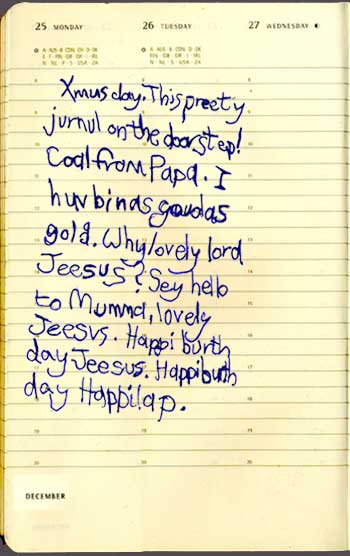 25 MONDAY 26 TUESDAY 27 WEDNESDAY
Xmus day. This preety
jurnul on the doorstep!
Coal from Papa. I
huv bin as goud as
gold. Why lovely lord
Jeesus? Sey helo
to Mumma, lovely
Jeesus. Happi burth
day Jeesus. Happi burth
day Happilap.
DECEMBER